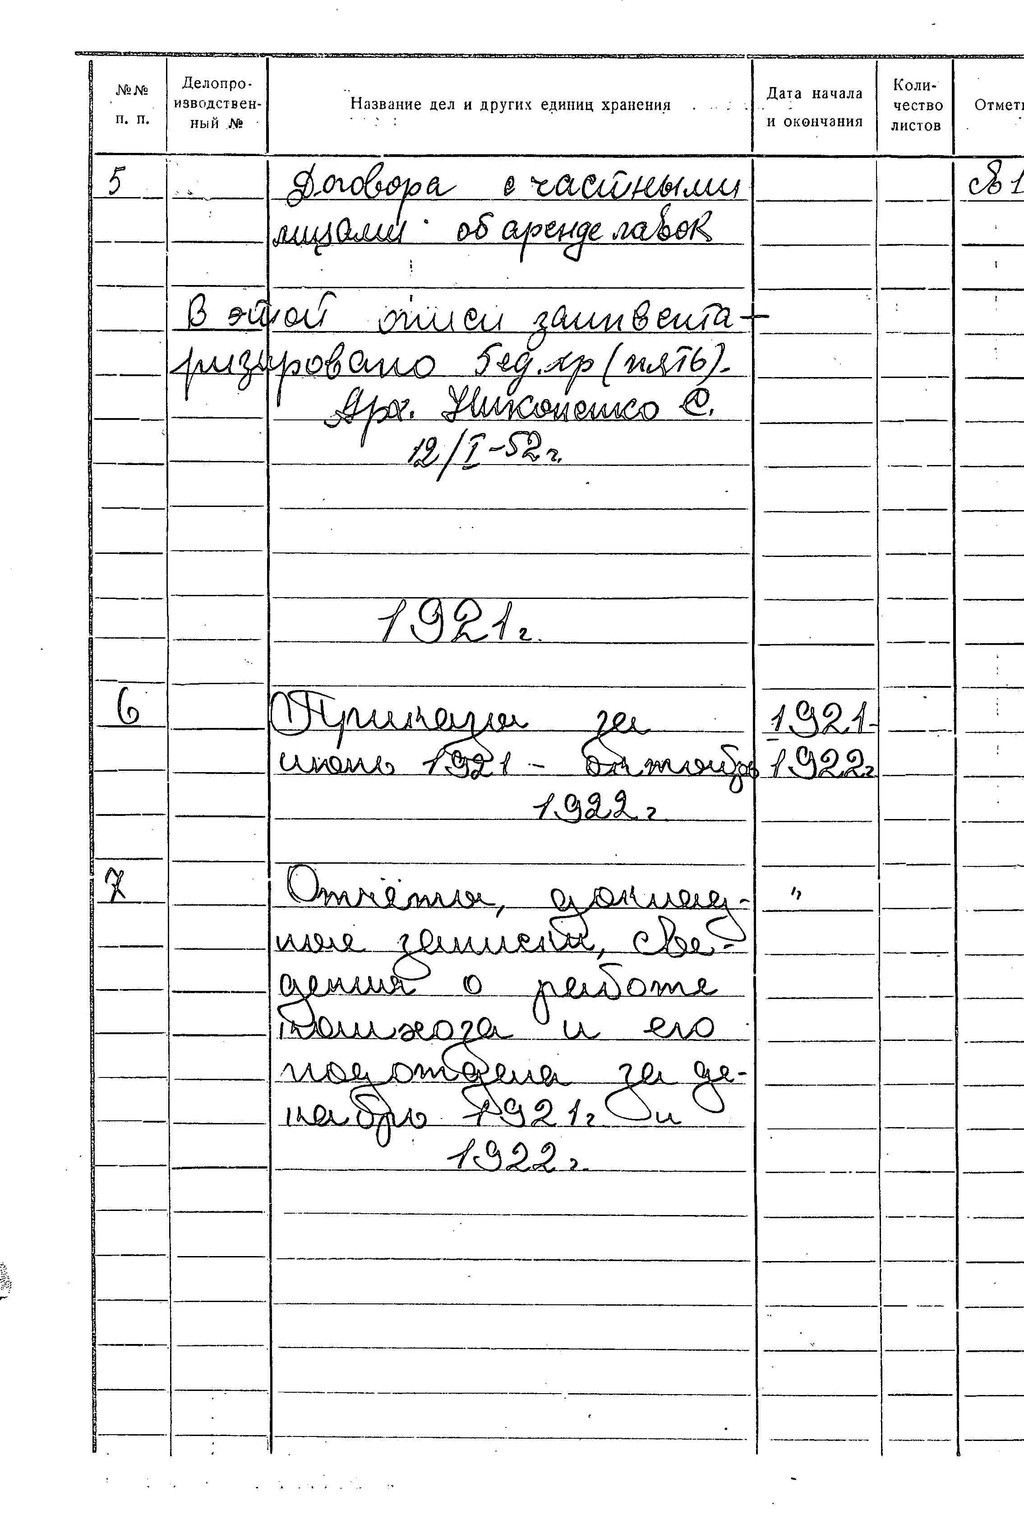 №№ п. п.
Делопро-
изводствен-
ный №
Название дел и других единиц хранения
Дата начала
и окончания
Коли-
чество
листов
Отмет
5 Договора с частными
лицами об аренде лавок
В этой описи заинвента-
ризировано 5 ед. хр (пять).
Арх. Никоненко С.
12/I-52 г.
1921 г.
6 Приказы за 1921-
июнь 1921 - октябрь 1922 г
1922 г
7 Отчёты, доклад- "
ные записки, све-
дения о работе
комхоза и его
подотдела за де-
кабрь 1921 г и
1922 г.